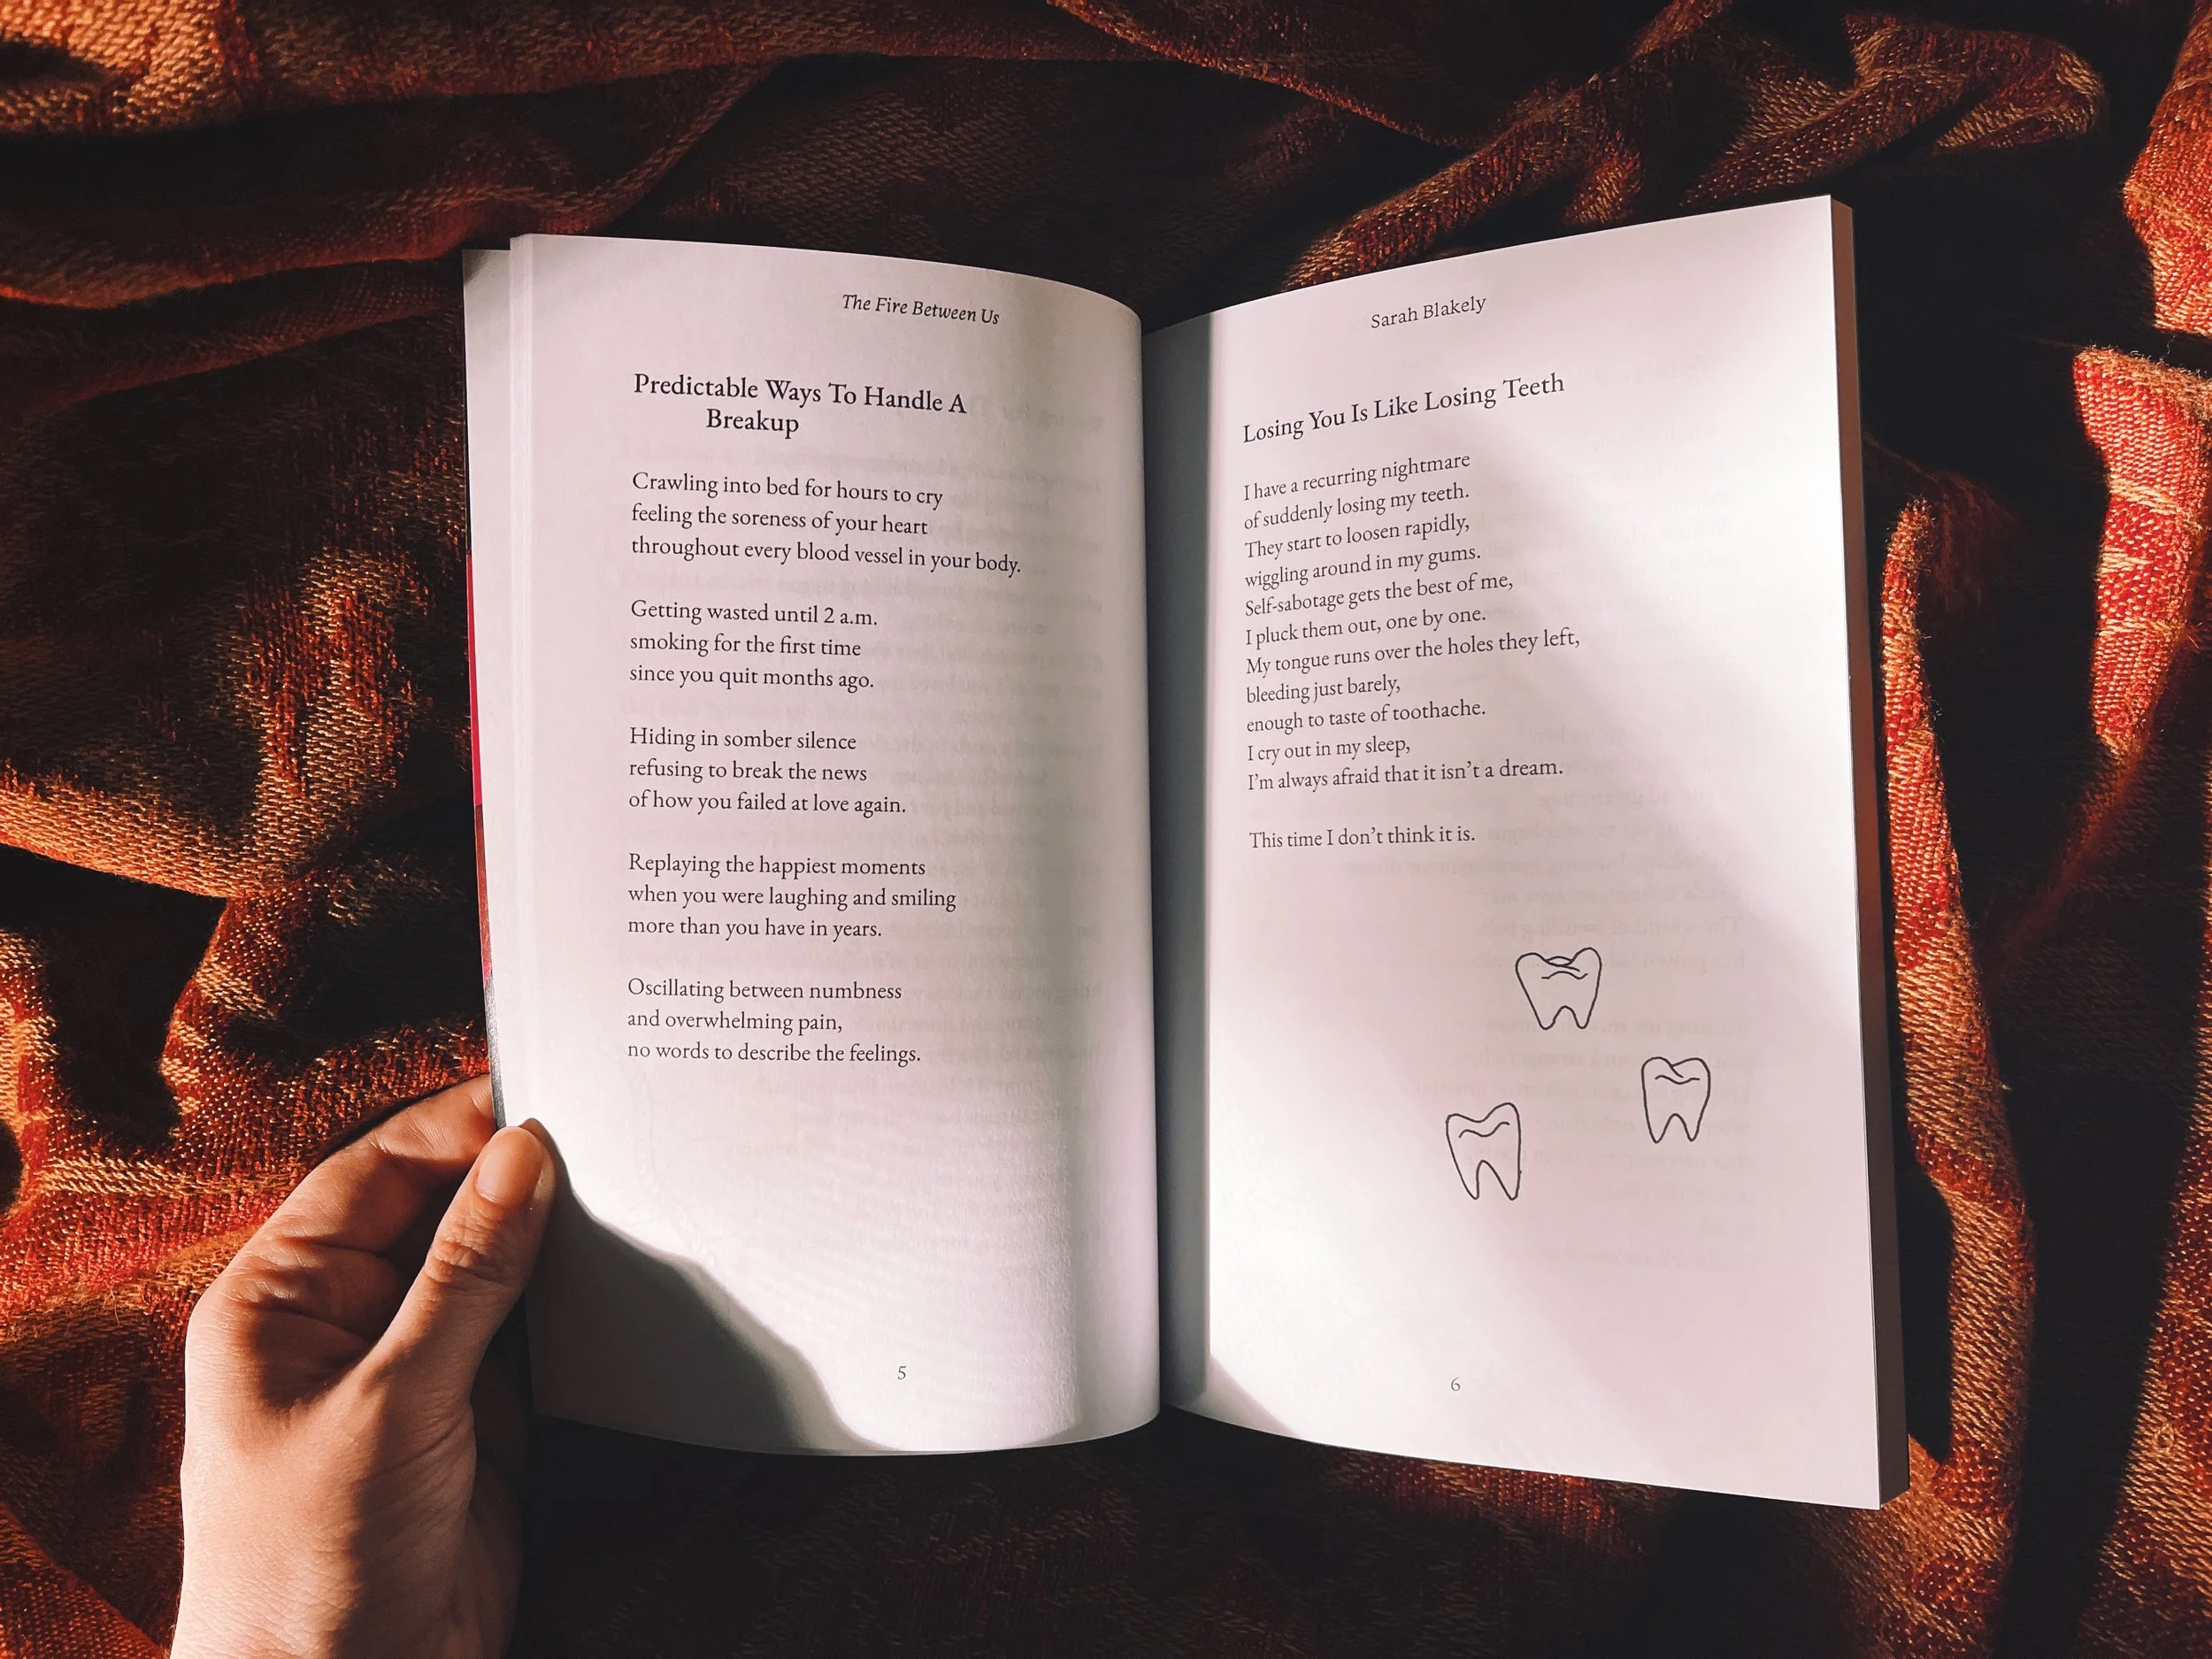 The Fire Between Us
Predictable Ways To Handle A
Breakup
Crawling into bed for hours to cry
feeling the soreness of your heart
throughout every blood vessel in your body.
Getting wasted until 2 a.m.
smoking for the first time
since you quit months ago.
Hiding in somber silence
refusing to break the news
of how you failed at love again.
Replaying the happiest moments
when you were laughing and smiling
more than you have in years.
Oscillating between numbness
and overwhelming pain,
no words to describe the feelings.
5
Sarah Blakely
Losing You Is Like Losing Teeth
I have a recurring nightmare
of suddenly losing my teeth.
They start to loosen rapidly,
wiggling around in my gums.
Self-sabotage gets the best of me,
I pluck them out, one by one.
My tongue runs over the holes they left,
bleeding just barely,
enough to taste of toothache.
I cry out in my sleep,
I'm always afraid that it isn't a dream.
This time I don't think it is.
6